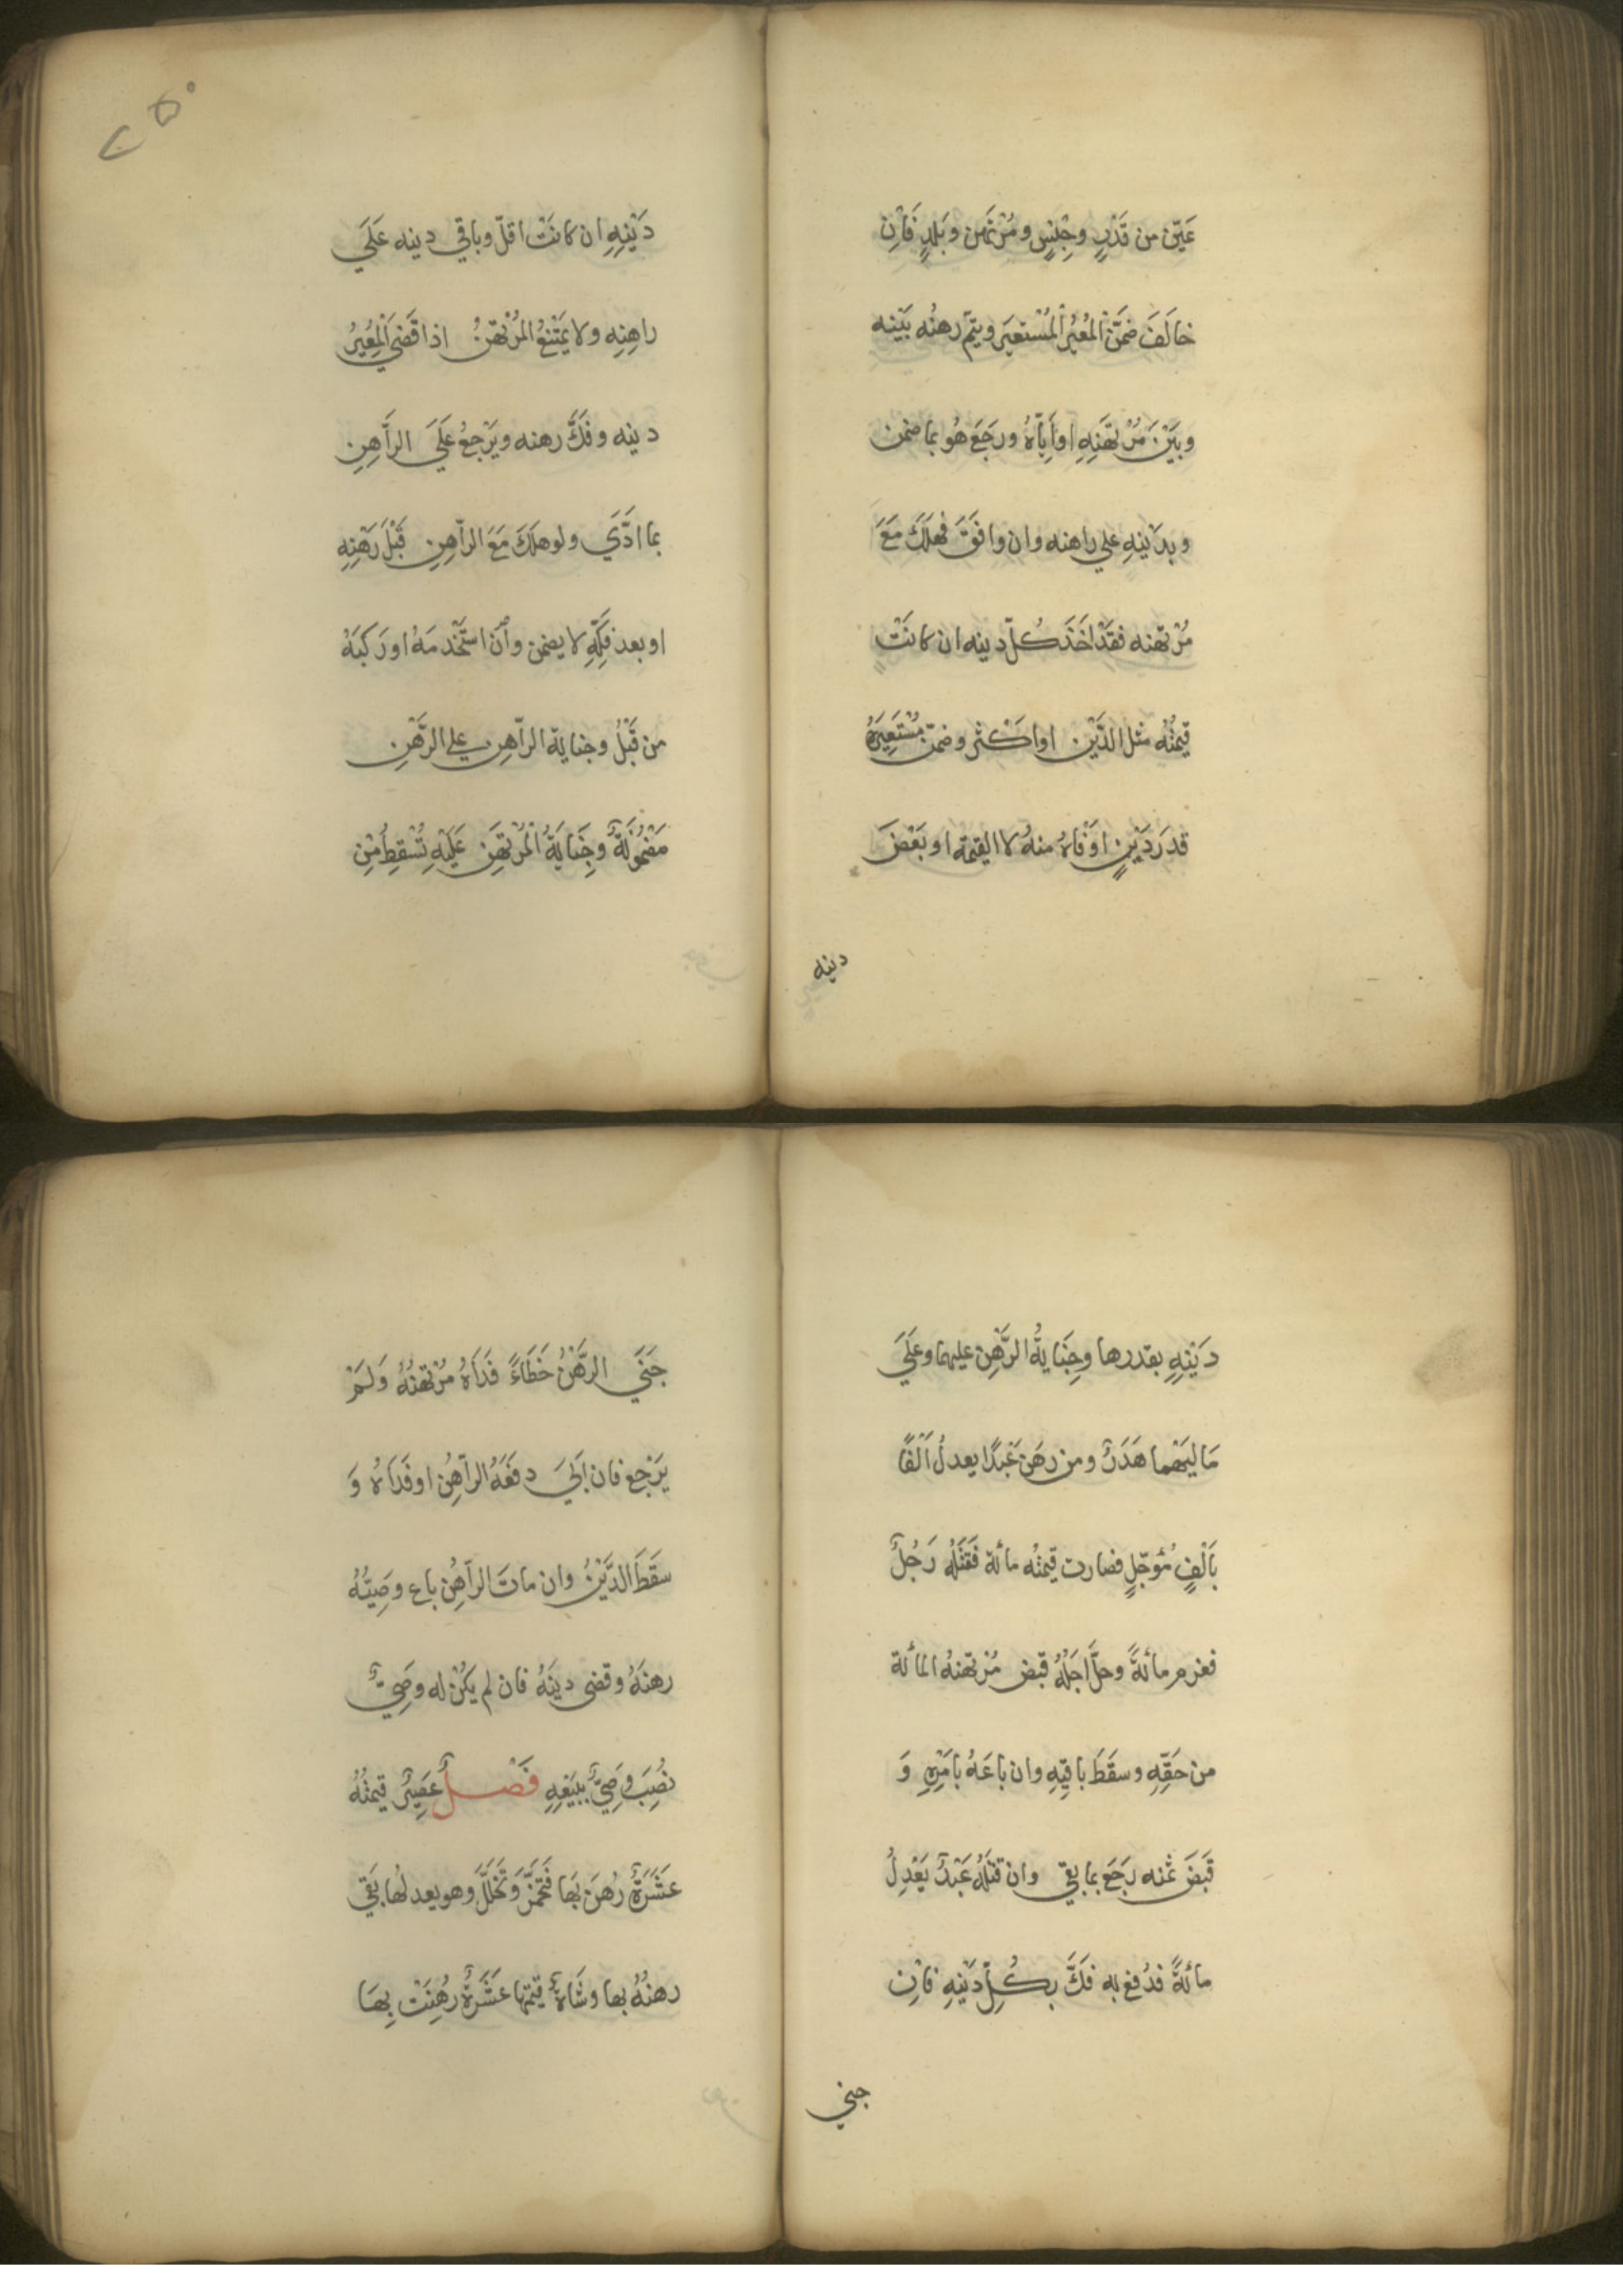 عَيَّنَ من قَدْرٍ وجِنْسٍ ومُرْتَهِن وبَلدٍ فَاِن
خالَفَ ضَمَّنَ الْمُعِيْرُ الْمُسْتعيَر ويتمّ رهنُه بَيْنه
وبَيْنَ مُرْتهَنِهِ اواِيَّاهُ ورجَعَ هُو بما ضمن
وبدَيْنِهِ علي راهنه وان وافَقَ فهَلَكَ مَعَ
مُرْتهنه فقَدْ اَخَذَ كُلّ دينه ان كانَتْ
قيمَتُه مثل الدَّيْن اواَكْثر وضمّن مُسْتَعِيَرهُ
قدرَ دَيْنٍ اَوْفَاهُ منهُ لا القيمة او بَعْضَ
دينه
٢٥٠
دَيْنِهِ ان كانَتْ اقلّ وباقي دينه عَلَي
راهِنِه ولا يَمْتَنِعُ المُرْتَهِنُ اذا قَضَى الْمُعِيْرُ
دينه وفَكَّ رهنه ويَرْجِعُ عَلَي الرَّاهِنِ
بما ادَّي ولو هَلَكَ مَعَ الرَّاهِنِ قَبْلَ رَهْنِهِ
او بعد فَكِّهِ لا يضمن وان اسْتَخْدمَهُ اورَكبَهُ
من قَبْلُ وجناية الرَّاهِن علي الرَّهْنِ
مَضْمُونَةٌ وجِنَايَةُ الْمُرْتَهِن عَلَيْهِ تُسْقِطُ مِن
دَيْنِهِ بقدرها وجِنَايةُ الرَّهْن عليهما وعَلَي
مَالِيَهْما هَدَرٌ ومن رهَن عَبْدًا يعدلُ اَلْفًا
بَالْفٍ مُؤجّلٍ فصارت قيمتُه مائة فقتَلَهُ رَجُلٌ
فغرم مائةً وحلَّ اجَلُهُ قبض مُرْتهنهُ المائة
من حَقِّهِ وسقَطَ باقيِهِ وان باعَهُ بامْرِهِ وَ
قَبَضَ ثمنه رجَعَ بما بقي وان قتلَهُ عَبْدٌ يَعْدِلُ
مائةً فدُفع به فَكَّ بكُلِّ دَيْنِهِ فاِن
جني
جَنَي الرَّهْنُ خَطَاءً فَدَاهُ مُرْتهنُهُ وَلَمْ
يَرْجِع فان اَبَي دفَعَهُ الرّاهِنُ اوفَدَاهُ وَ
سقَطَ الدَّيْنُ وان ماتَ الرَّاهِنُ باع وصِيُّهُ
رهنَهُ وقضى دينَهُ فان لم يَكُنْ له وصِيٌّ
نُصِبَ وَصِيٌّ ببَيْعِهِ فَصْلٌ عَصِيْرٌ قيمتُهُ
عَشَرَةٌ رُهِنَ بَها فَتَخَمَّرَ وَتَخَلَّلَ وهو يعدلها بَقَي
رهنُهُ بها وشَاةٌ قيمتها عَشَرَةٌ رُهِنَتْ بِهَا